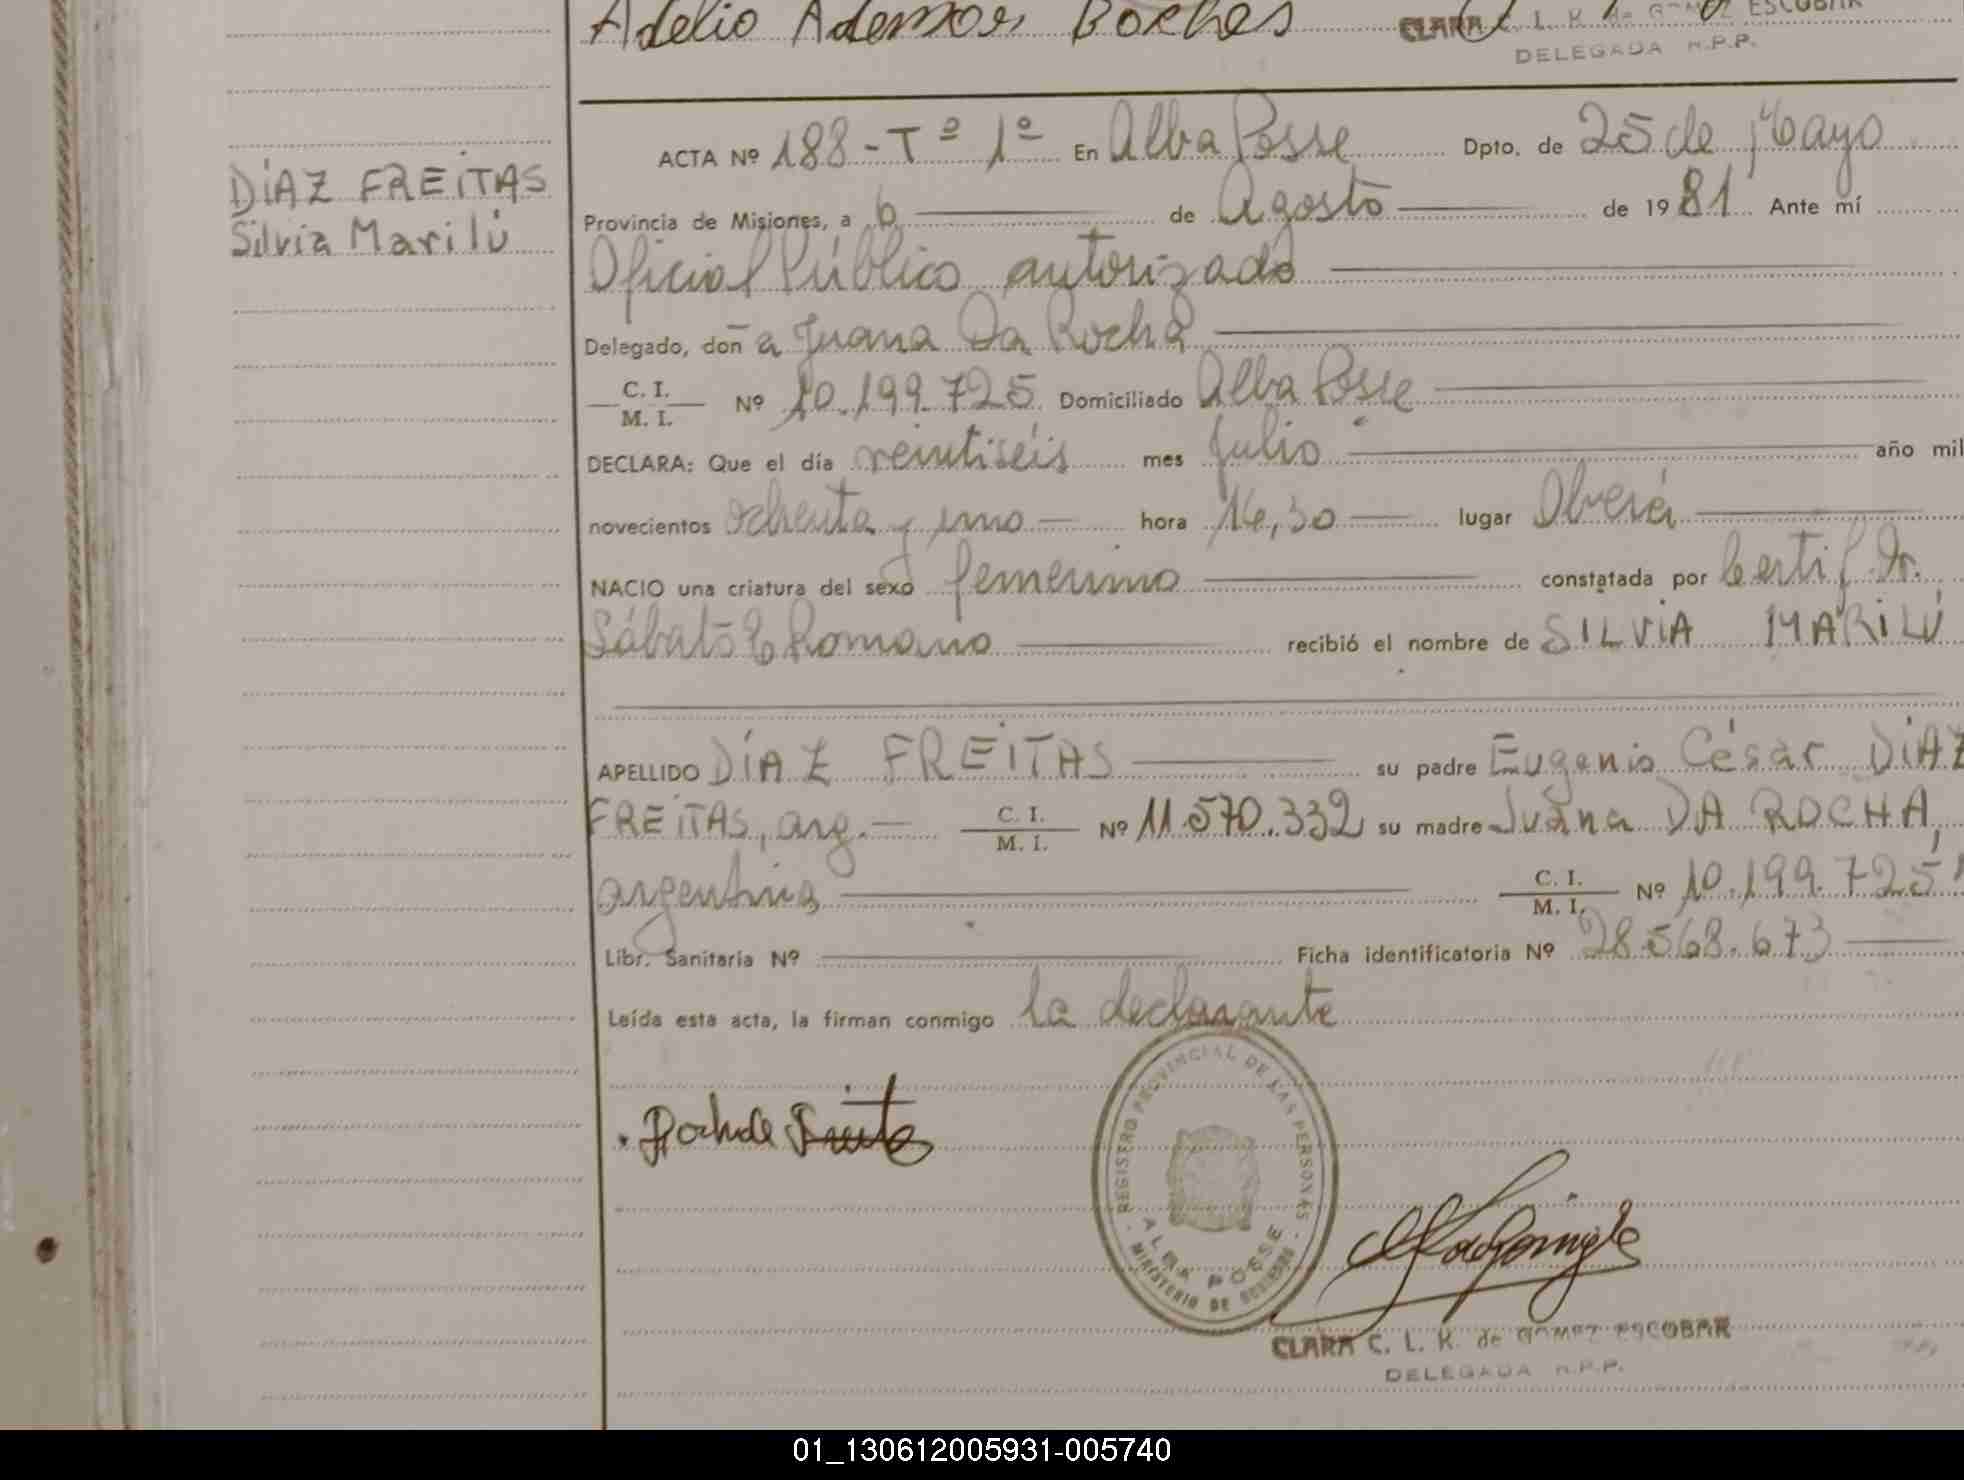 Adelio Ademar Borches
CLARA C. L. K. de GOMEZ ESCOBAR
DELEGADA R.P.P.
DíAZ FREiTAS
Silvia Marilú
ACTA Nº 188 - Tº 1º En Alba Posse Dpto. de 25 de Mayo
Provincia de Misiones, a 6 de Agosto de 1981 Ante mí
Oficial Público autorizado
Delegado, doña Juana Da Rocha
C. I.
M. I. Nº 10.199.725 Domiciliado Alba Posse
DECLARA: Que el día veintiséis mes Julio año mil
novecientos ochenta y uno hora 14,30 lugar Oberá
NACIO una criatura del sexo femenino constatada por Certif. Dr.
Sábato Romano recibió el nombre de SILViA MARiLÚ
APELLIDO DíAZ FREiTAS su padre Eugenio César DíAZ
FREiTAS, arg. C. I.
M. I. Nº 11.570.332 su madre Juana DA ROCHA,
argentina C. I.
M. I. Nº 10.199.725
Libr. Sanitaria Nº Ficha identificatoria Nº 28.568.673
Leída esta acta, la firman conmigo la declarante
REGISTRO PROVINCIAL DE LAS PERSONAS
ALBA POSSE
MINISTERIO DE GOBIERNO
CLARA C. L. K. de GOMEZ ESCOBAR
DELEGADA R.P.P.
01_130612005931-005740